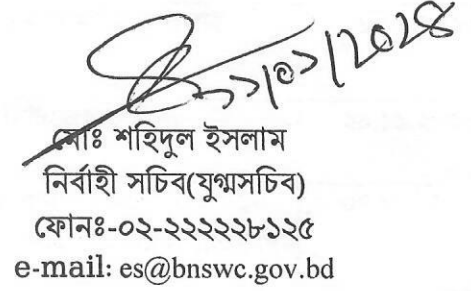 ১১/০১/২০২৪
মোঃ শহিদুল ইসলাম
নির্বাহী সচিব(যুগ্মসচিব)
ফোনঃ-০২-২২২২২৮১২৫
e-mail: es@bnswc.gov.bd